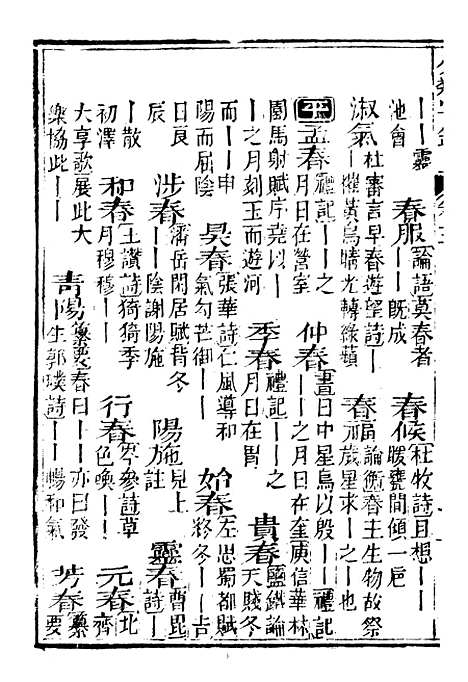 ——露池會 春服論語莫春者——既成 春候杜牧詩且想——暖甕間傾一巵
淑氣杜審言早春遊望詩——催黃鳥晴光轉綠蘋 春福論衡春主生物故祭元歲星求—之—也
平 孟春禮記——之月日在營室 仲春書日中星鳥以殷——禮記——之月日在奎庾信華林
園馬射賦序堯以——之月刻玉而遊河 季春禮記——之月日在胃 貴春鹽鐵論天賤冬
而——申陽而屈陰 昊春張華詩仁風導和氣勾芒御—— 始春左思蜀都賦將冬——吉
日良辰 涉春潘岳閑居賦背冬——陰謝陽施 陽施見上註 靈春曹毘詩—
—散初澤 和春王讚詩猗猗季月穆穆—— 行春岑參詩草色喚—— 元春北齊
大享歌展此大樂協此—— 青陽纂要春曰——亦曰發生郭璞詩——暢和氣 芳春纂要